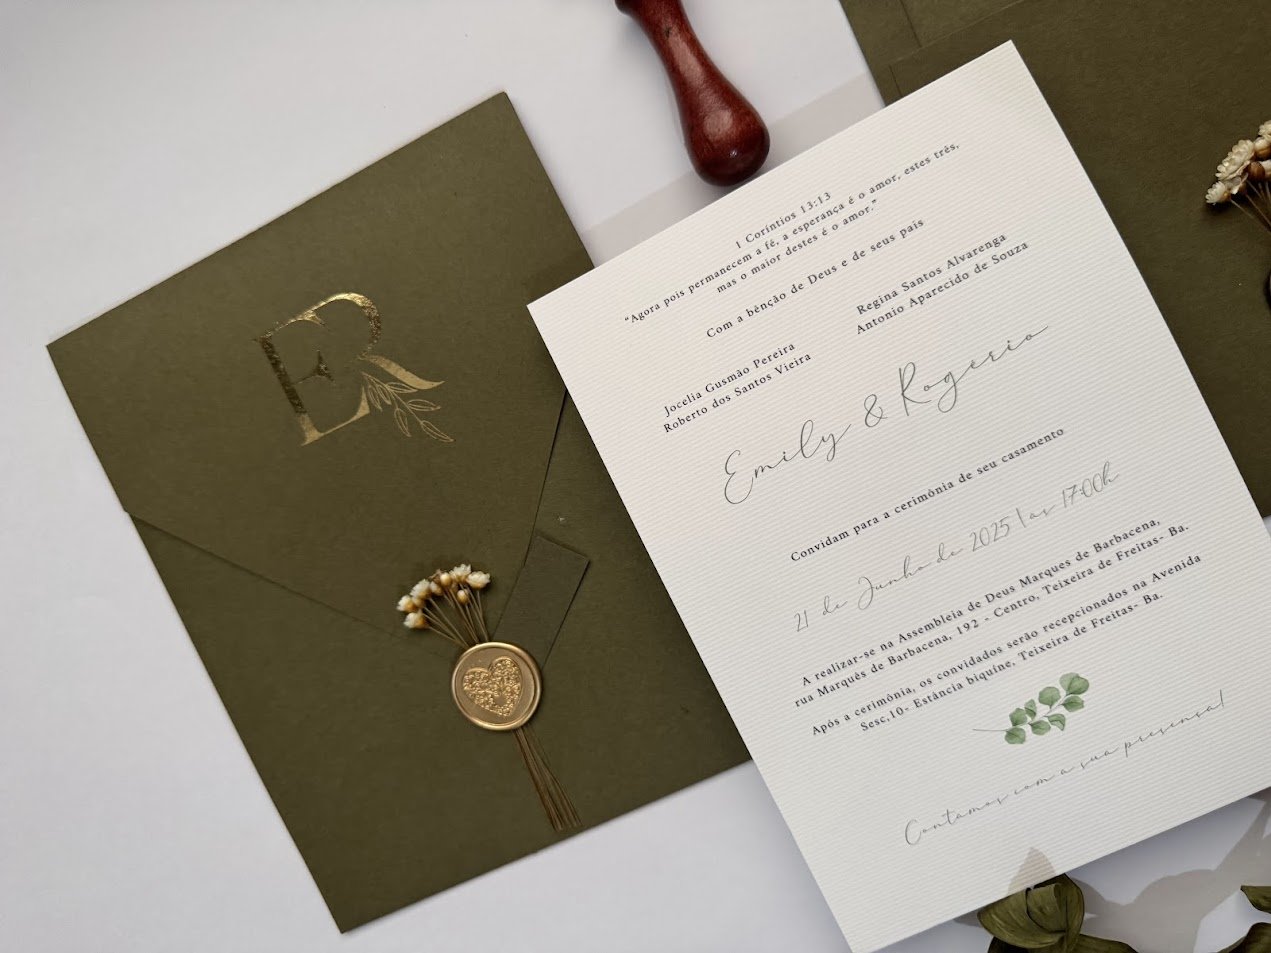 ER
1 Coríntios 13:13
"Agora pois permanecem a fé, a esperança é o amor, estes três,
mas o maior destes é o amor."
Com a bênção de Deus e de seus pais
Jocelia Gusmão Pereira
Roberto dos Santos Vieira
Regina Santos Alvarenga
Antonio Aparecido de Souza
Emily & Rogério
Convidam para a cerimônia de seu casamento
21 de Junho de 2025 | às 17:00h
A realizar-se na Assembleia de Deus Marques de Barbacena,
rua Marquês de Barbacena, 192 - Centro, Teixeira de Freitas- Ba.
Após a cerimônia, os convidados serão recepcionados na Avenida
Sesc,10- Estância biquine, Teixeira de Freitas- Ba.
Contamos com a sua presensa!